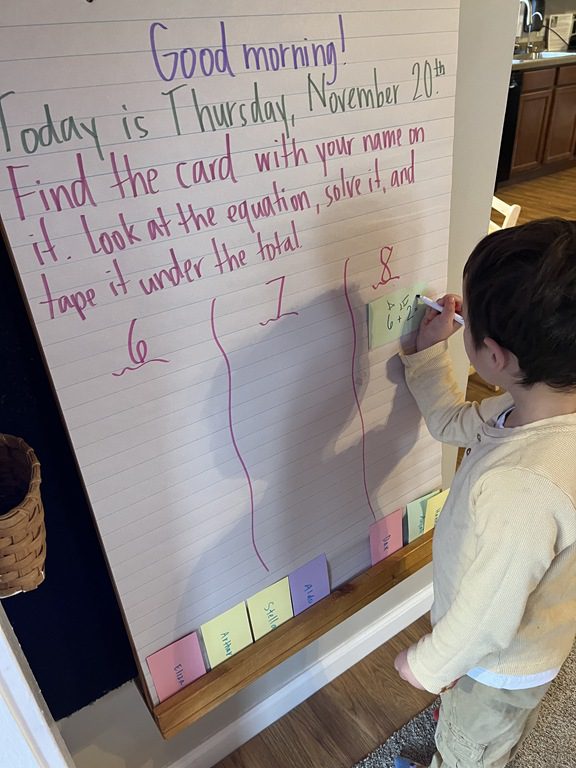 Good morning!
Today is Thursday, November 20th.
Find the card with your name on
it. Look at the equation, solve it, and
tape it under the total.
6 7 8
6 + 2
Arthur
Stella
Dax